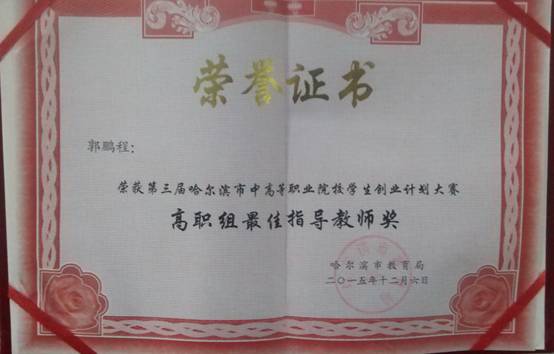 荣誉证书
郭鹏程：
荣获第三届哈尔滨市中高等职业院校学生创业计划大赛
高职组最佳指导教师奖
哈尔滨市教育局
二〇一五年十二月六日